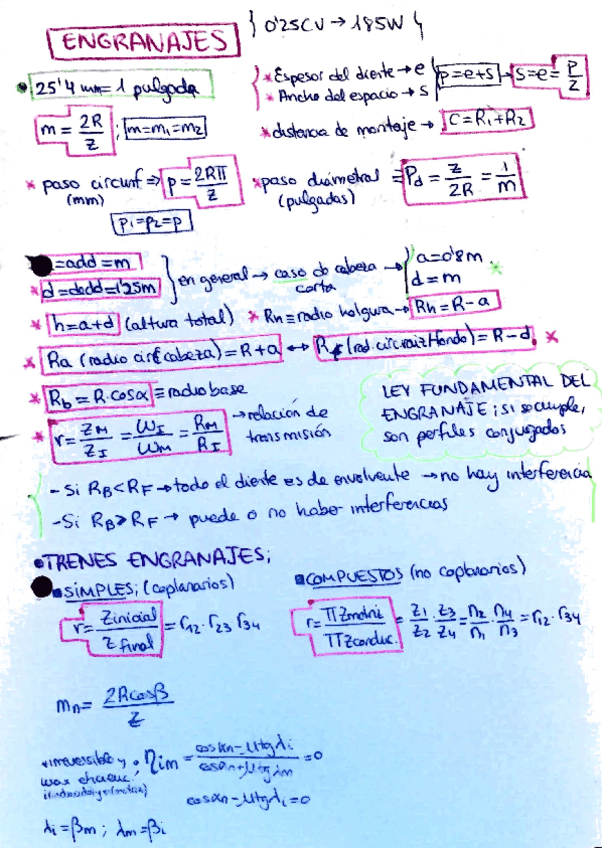 ENGRANAJES { 0'25CV → 185W }
• 25'4 mm = 1 pulgada
* Espesor del diente → e
* Ancho del espacio → s
p=e+s → s=e=p/2
m = 2R/z ; m=m₁=m₂
* distancia de montaje → C=R₁+R₂
* paso circunf => p = 2RΠ/z
(mm)
* paso diametral ≡ Pd = z/2R = 1/m
(pulgadas)
p₁=p₂=p
=add=m
* d=dedd=1'25m
} en general → caso de cabeza corta → { a=0'8m
d=m *
* h=a+d (altura total) * Rh≡radio holgura → Rh=R-a
* Ra (radio circ cabeza)=R+a ↔ Rf (rad circ raiz/fondo)=R-d *
* Rb = R·cosα ≡ radio base
* r = z_M/z_I = ω_I/ω_M = R_M/R_I → relación de transmisión
LEY FUNDAMENTAL DEL
ENGRANAJE; si se cumple,
son perfiles conjugados
- Si R_B < R_F → todo el diente es de envolvente → no hay interferencia
- Si R_B ≥ R_F → puede o no haber interferencias
• TRENES ENGRANAJES;
SIMPLES; (coplanarios)
r = z inicial/z final = r₁₂·r₂₃·r₃₄
COMPUESTOS (no coplanarios)
r = Πzmotriz/Πzconduc. = z₁/z₂ · z₃/z₄ = n₂/n₁ · n₄/n₃ = r₁₂·r₃₄
mn = 2Rcosβ/z
• irreversible y
• ηim = (cosαn - μtgλi)/(cosαn + μtgλm) = 0
cosαn - μtgλi = 0
λi = βm ; λm = βi